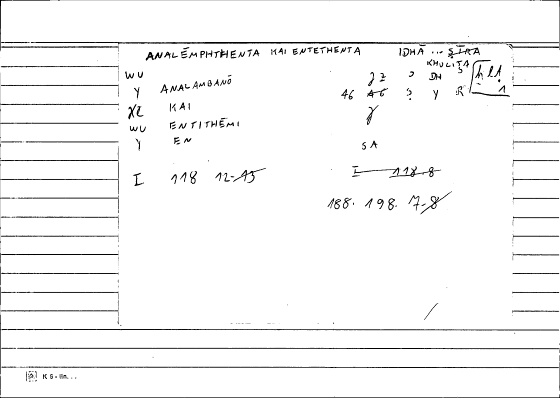 ANALĒMPHTHENTA KAI ENTETHENTA IDHĀ ... ṢĪRA
KHULIṬA
WU
Y ANALAMBANŌ
KAI
WU ENTITHĒMI
Y EN
γz ? DH S
46 A6 ? Y R
γ
SA
ḫlṭ
1
I 118 12-15
I 118.8
188. 198. 7-8
K 6 - lin...